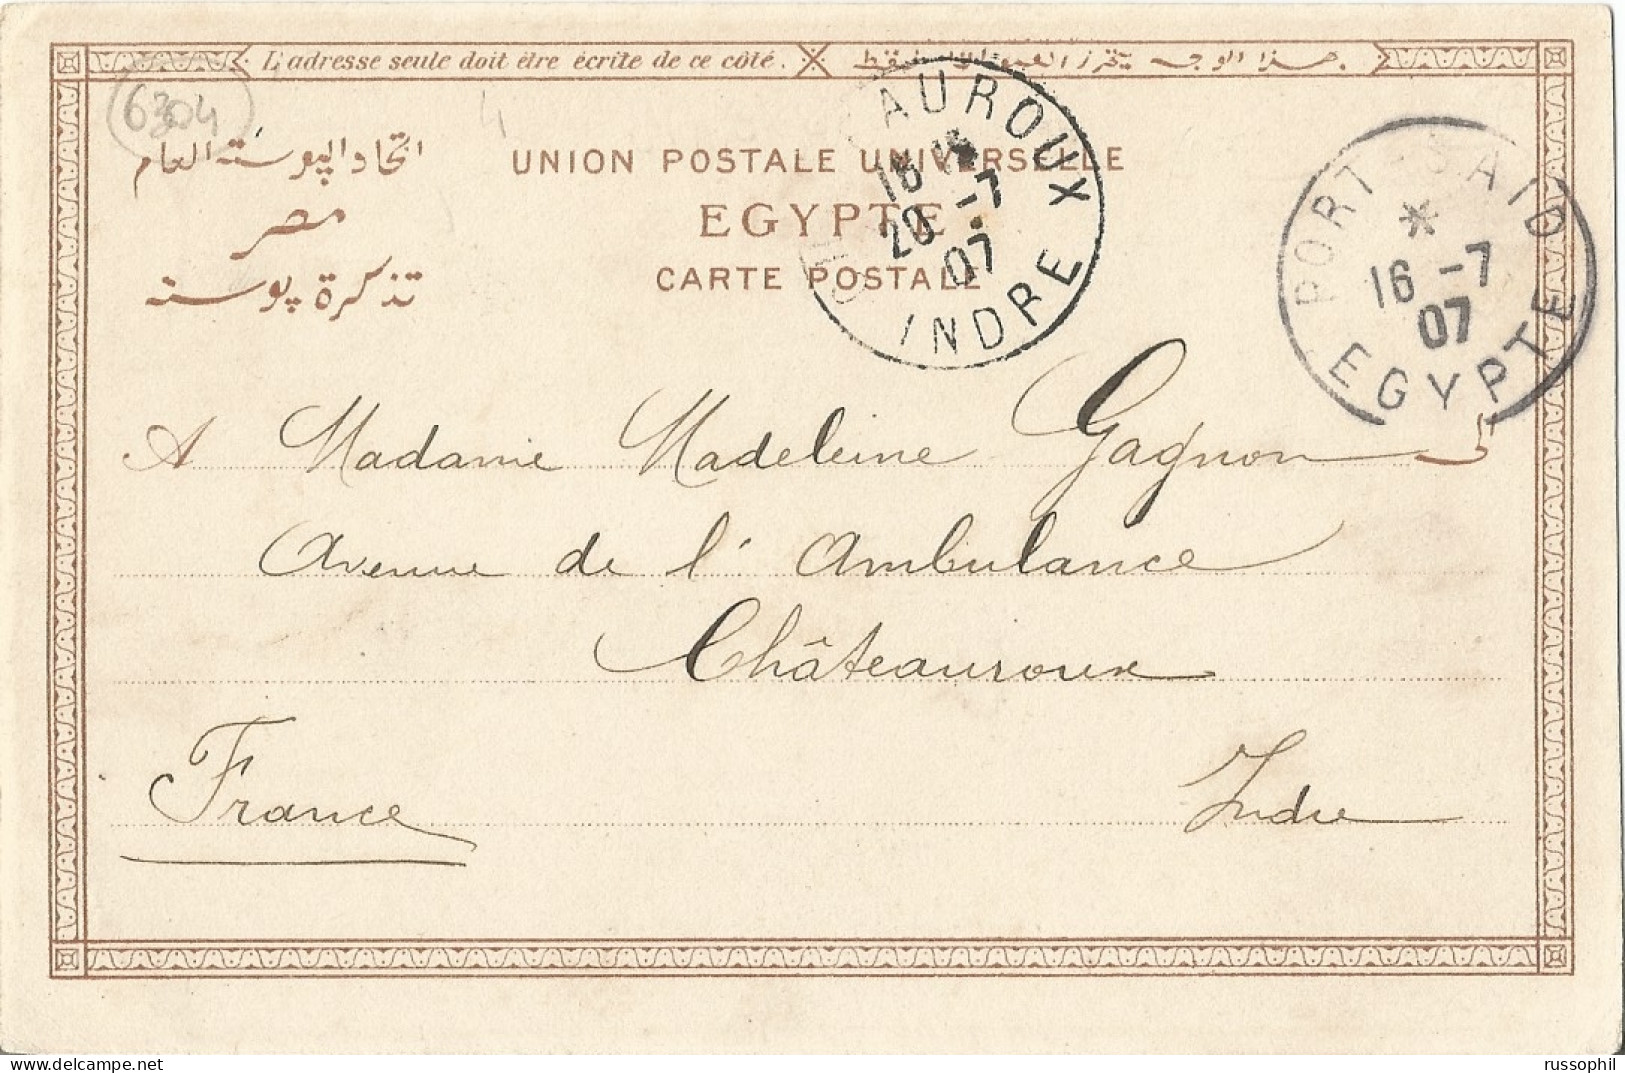 L'adresse seule doit être écrite de ce côté.
6304
4
اتحاد البوسته العام
مصر
تذكرة بوسته
UNION POSTALE UNIVERSELLE
EGYPTE
CARTE POSTALE
AUROUX
20 -7
07
INDRE
PORT-SAID
16 -7
07
EGYPTE
A Madame Madeleine Gagnon
Avenue de l'Ambulance
Châteauroux
France
Indre
russophil